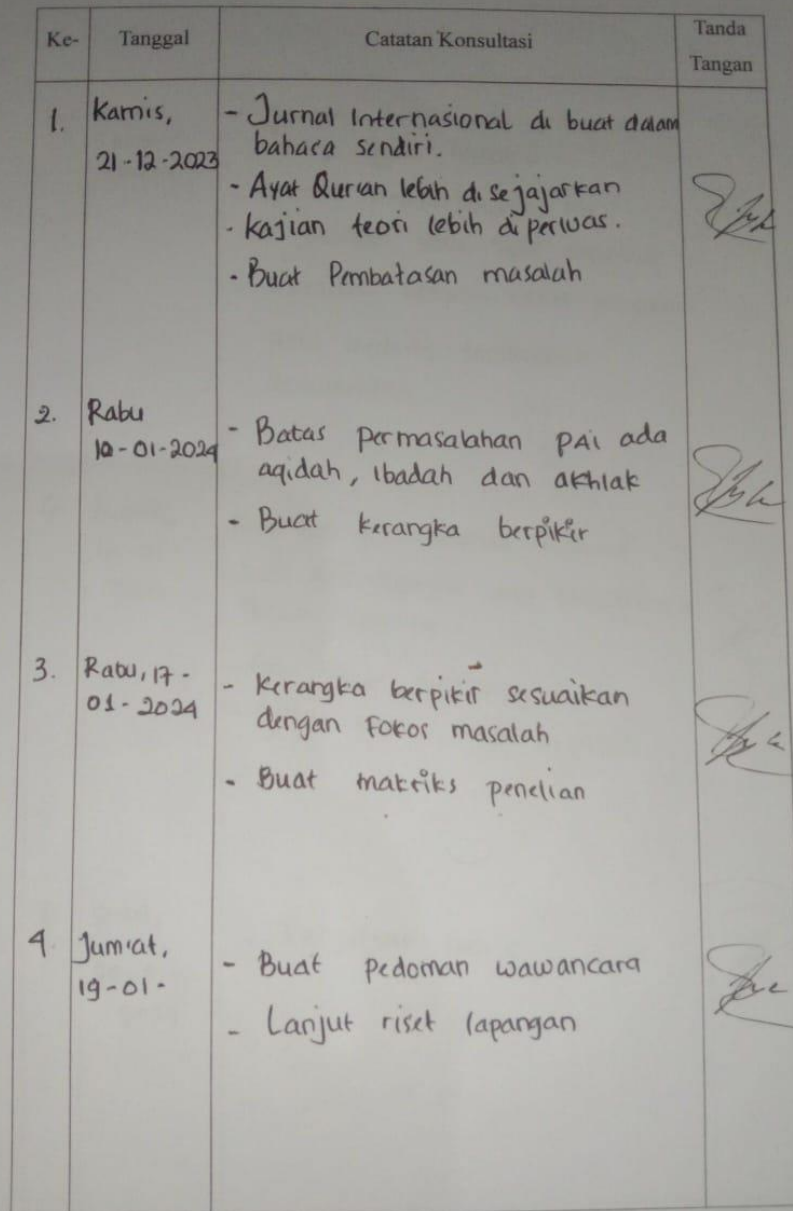 Ke- Tanggal Catatan Konsultasi Tanda
Tangan
1. Kamis,
21-12-2023
- Jurnal Internasional di buat dalam
bahasa sendiri.
- Ayat Qur'an lebih di sejajarkan
- kajian teori lebih di perluas.
- Buat Pembatasan masalah
2. Rabu
10-01-2024
- Batas permasalahan PAI ada
aqidah, ibadah dan akhlak
- Buat kerangka berpikir
3. Rabu, 17-
01-2024
- Kerangka berpikir sesuaikan
dengan Fokos masalah
- Buat matriks penelian
4. Jum'at,
19-01-
- Buat pedoman wawancara
- Lanjut riset lapangan